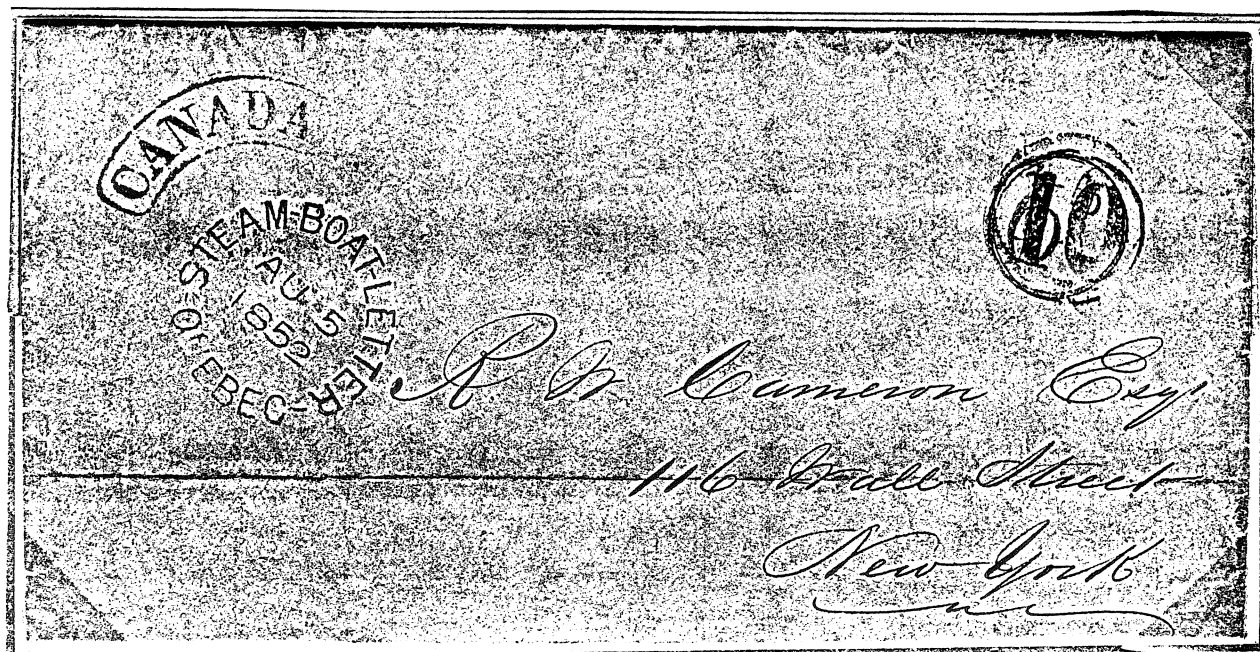 CANADA
STEAM-BOAT-LETTER
AU 5
1852
QUEBEC
10
R. W Cameron Esq
116 Wall Street
New York